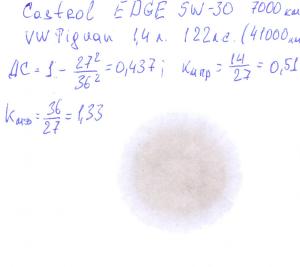 Castrol EDGE 5W-30 7000 км
VW Tiguan 1,4 л. 122 л.с. (41000 км
ДС = 1 - 27²/36² = 0,437; Kпр = 14/27 = 0,51
K = 36/27 = 1,33